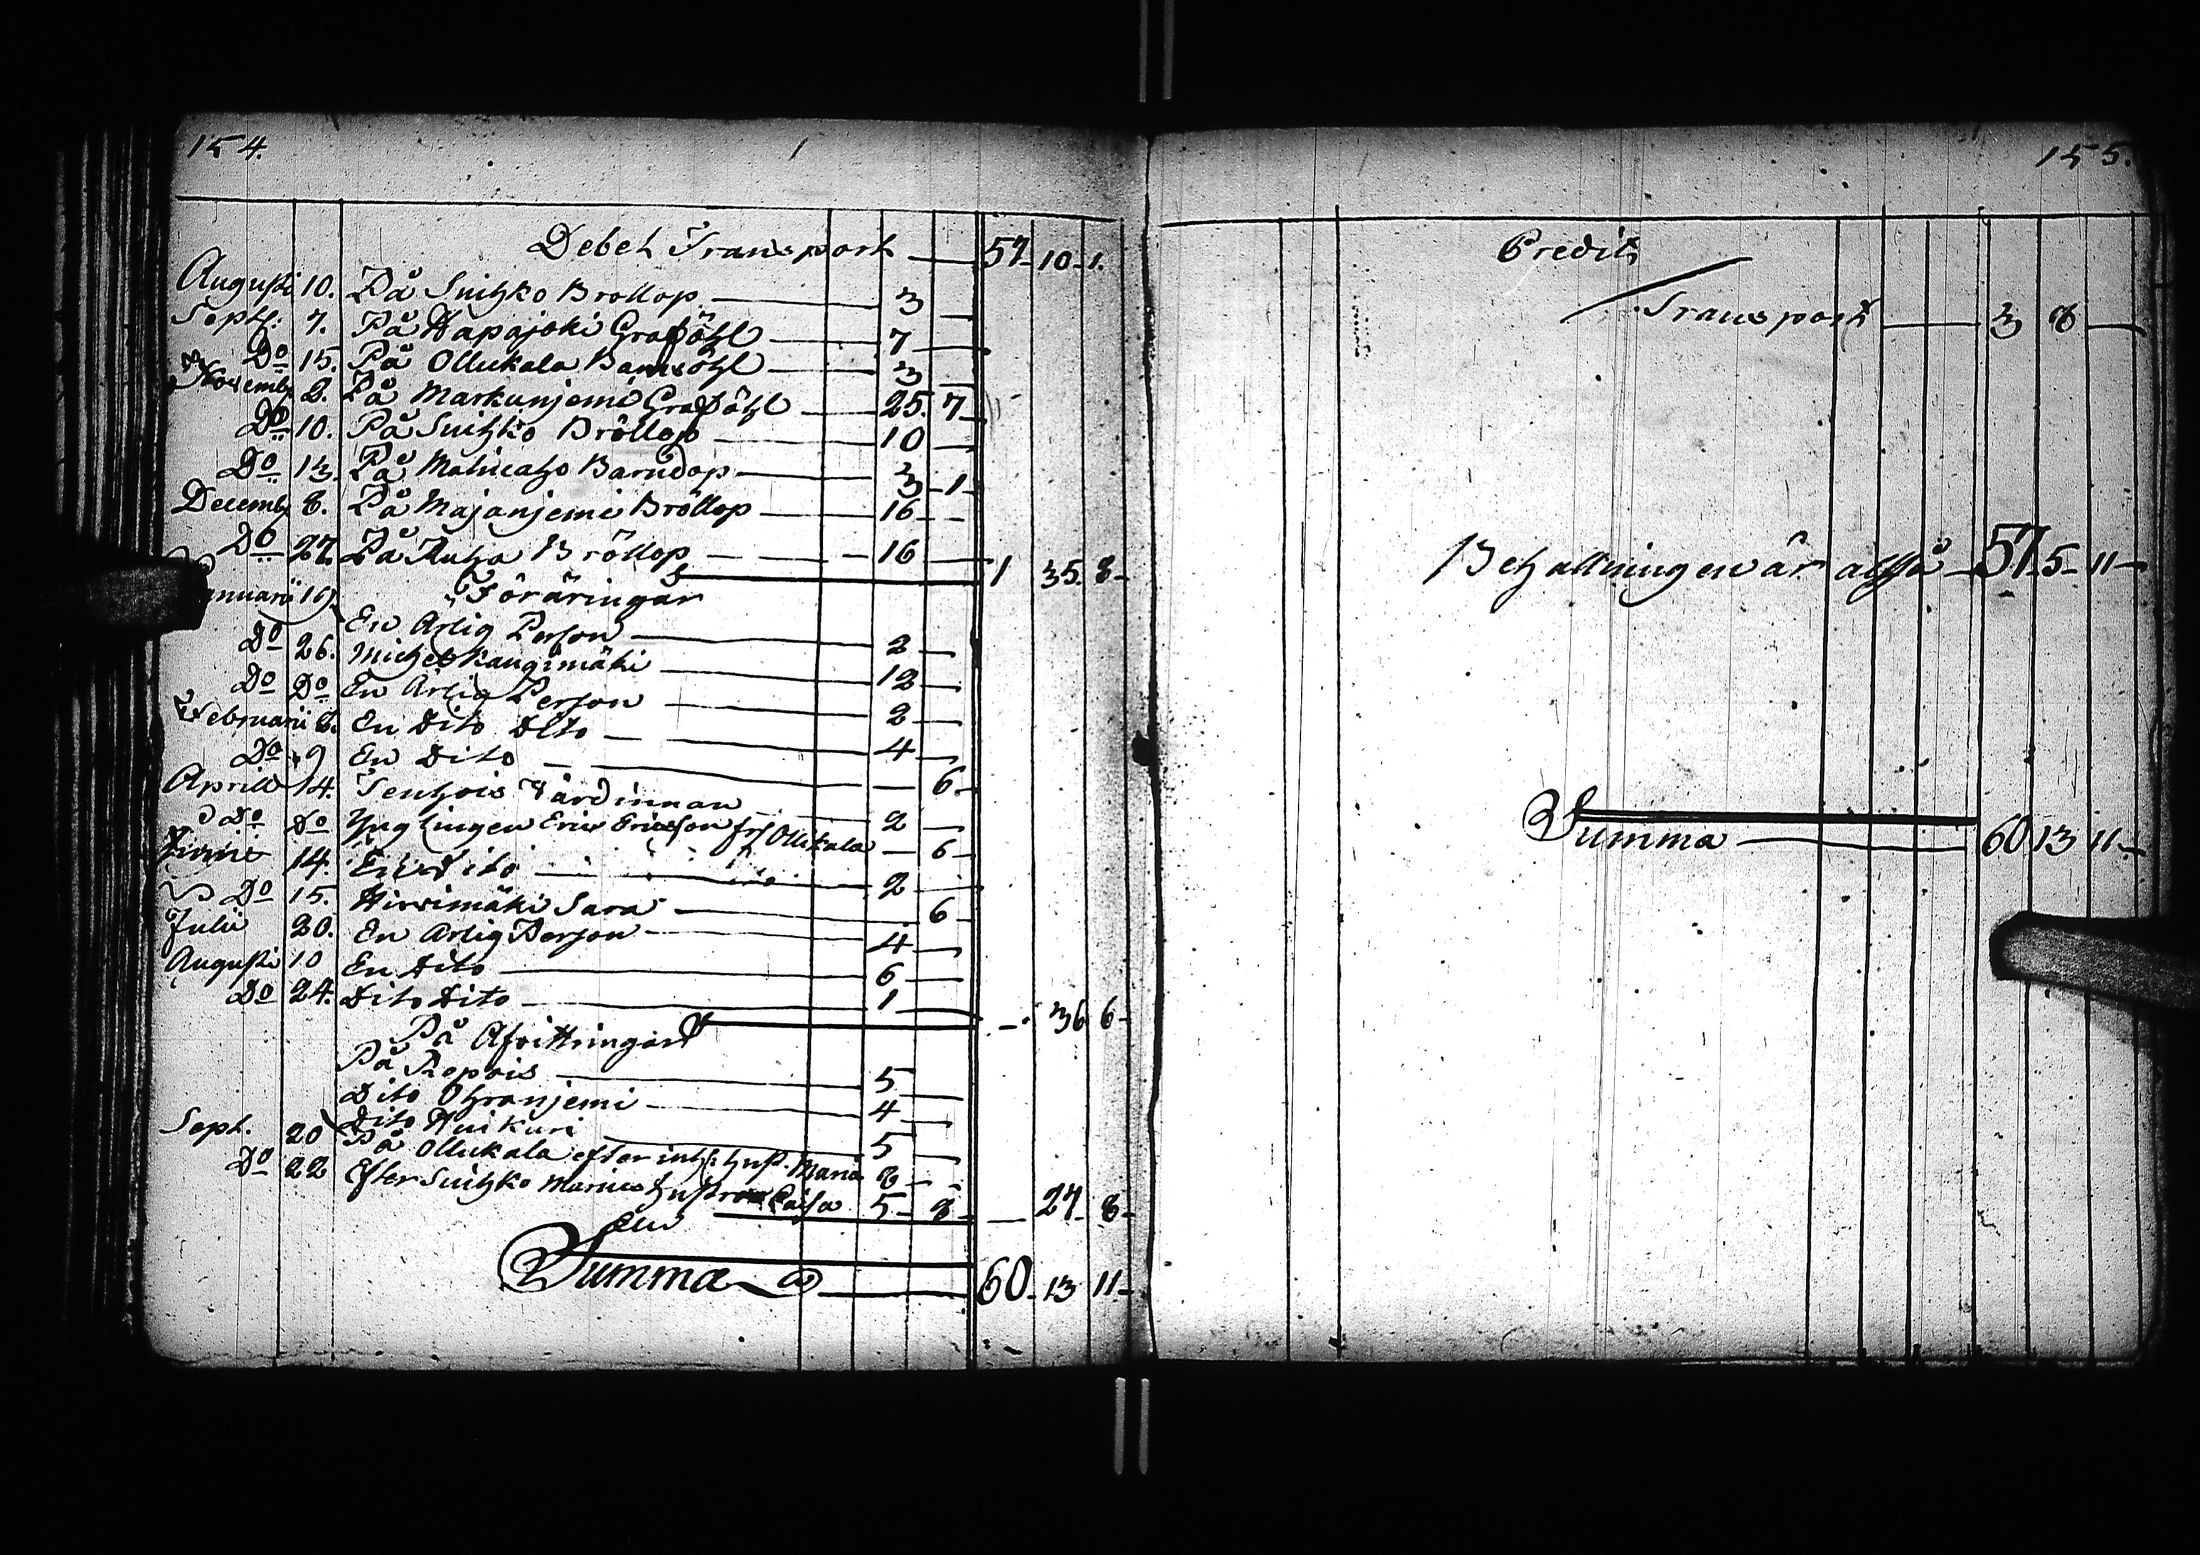 154.
Debet Transport 57 10 1.
Augusti 10. På Snitzko Bröllop 3
Sept: 7. På Hapajoki Grafööhl 7
Do 15. På Ollukala Barnsöhl 3
Novemb 2. På Markunjemi Graföhl 25. 7
Do 10. På Snitzko Bröllop 10
Do 13. På Barndop 3 1
Decemb 8. På Majanjemi Bröllop 16
Do 27. På Bröllop 16 1 35. 8
Föräringar
Januarii 19. En Ärlig Person 2
Do 26. Michel Kangimäki 12
Do Do En Ärlig Person 2
Februarii 8. En Dito Dito 4
Do 9 En Dito 6
Aprill 14. Värdinnan 2
Do Do Ynglingen Eric Ericsson fr Ollikala 6
14. En Dito 2
Do 15. Hirvimäki Sara 6
Julii 20. En Ärlig Person 4
Augusti 10 En Dito 6
Do 24. Dito Dito 1 36 6
På Afvittringar
På 5
Dito Ohranjemi 4
Dito Huikuri 5
Sept. 20 På Ollukala efter Maria 8
Do 22 Efter Snitzko hustru Caisa 5 8 27 8
Summa 60 13 11
155.
Credit
Transport 3 8
Behållningen är altså 57 5 11
Summa 60 13 11